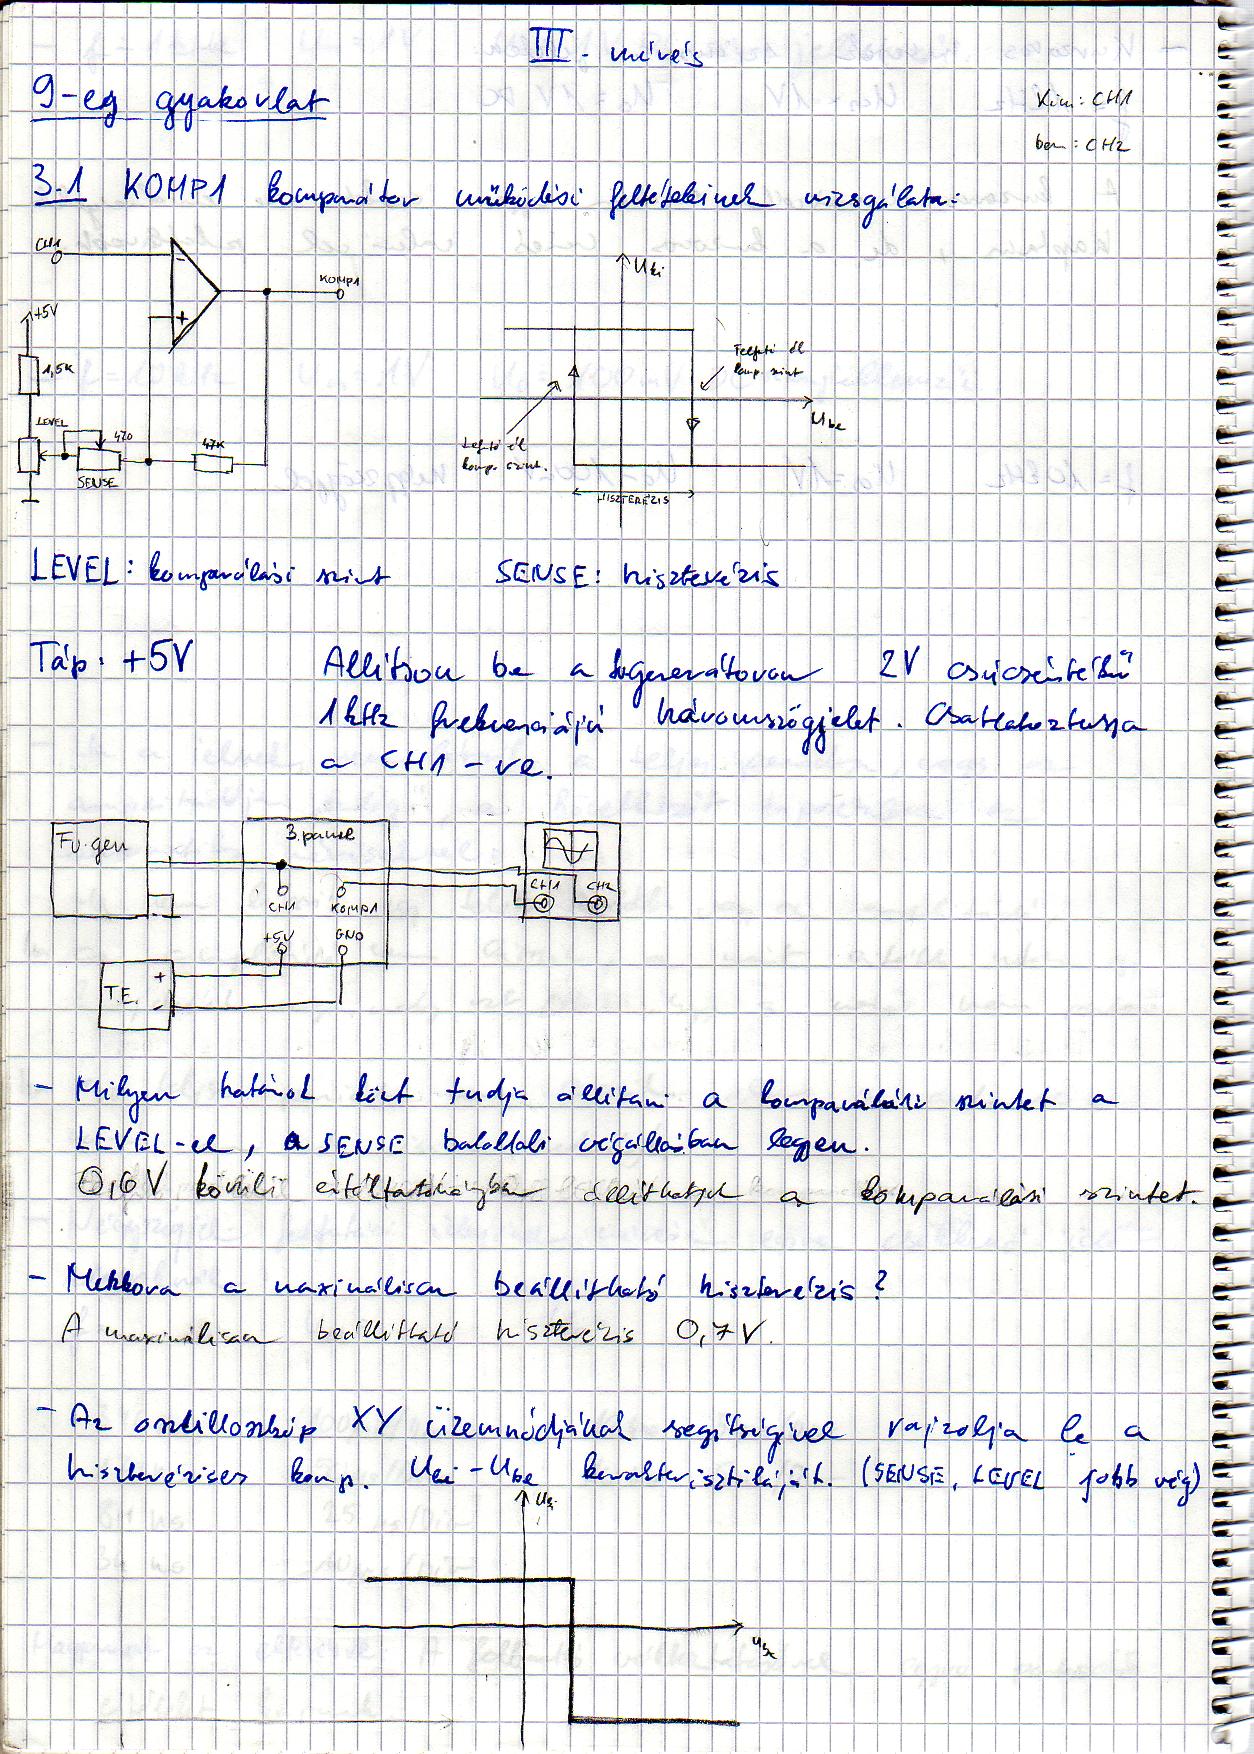 III. mérés
9-eg gyakorlat
Kim: CH1
bem: CH2
3.1 KOMP1 komparátor működési feltételeinek vizsgálata:
CH1
-
+
KOMP1
+5V
1,5K
LEVEL
470
SENSE
47K
Uki
Felfutó él
komp. szint
Ube
Lefutó él
komp. szint.
HISZTERÉZIS
LEVEL: komparálási szint SENSE: hiszterézis
Táp: +5V Állítson be a fg generátoron 2V csúcsértékű
1kHz frekvenciájú háromszögjelet. Csatlakoztassa
a CH1-re.
Fv. gen
3. panel
CH1
KOMP1
+5V
GND
CH1
CH2
T.E.
+
-
- Milyen határok közt tudja állítani a komparálási szintet a
LEVEL-el, a SENSE baloldali végállásban legyen.
0,6V körüli állíthatjuk a komparálási szintet.
- Mekkora a maximálisan beállítható hiszterézis?
A maximálisan beállítható hiszterézis 0,7V.
- Az oszcilloszkóp XY üzemmódjának segítségével rajzolja le a
hiszterézises komp. Uki-Ube karakterisztikáját. (SENSE, LEVEL jobb vég)
Uki
Ube